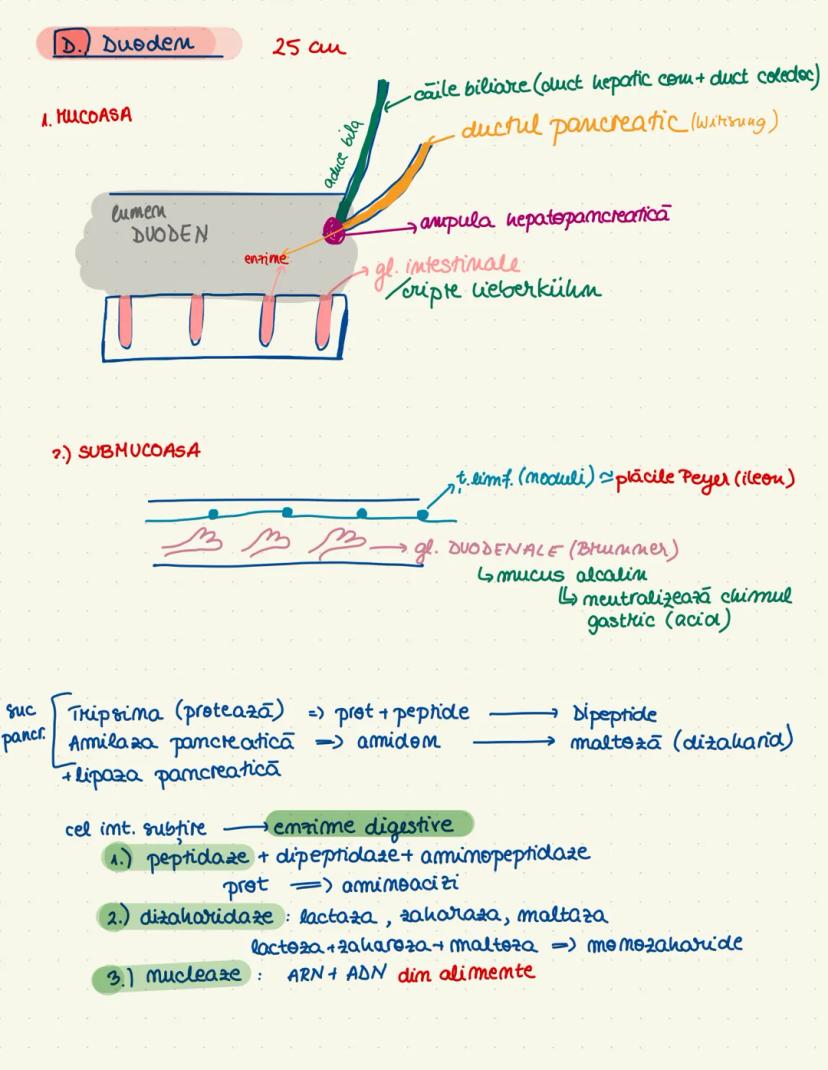 D.) Duoden 25 cm
1. MUCOASA
căile biliare (duct hepatic com + duct coledoc)
ductul pancreatic (Wirsung)
aduce bila
lumen
DUODEN
ampula hepatopancreatică
enzime
gl. intestinale
/cripte Lieberkühn
2.) SUBMUCOASA
ț. limf. (moduli) ≃ plăcile Peyer (ileon)
gl. DUODENALE (Brunner)
↳ mucus alcalin
↳ neutralizează chimul
gastric (acid)
suc
pancr.
Tripsina (protează) => prot + peptide → Dipeptide
Amilaza pancreatică => amidon → maltoză (dizaharid)
+ lipaza pancreatică
cel int. subțire → enzime digestive
1.) peptidaze + dipeptidaze + aminopeptidaze
prot => aminoacizi
2.) dizaharidaze : lactaza, zaharaza, maltaza
lactoza + zaharoza + maltoza => monozaharide
3.) nucleaze : ARN + ADN din alimente